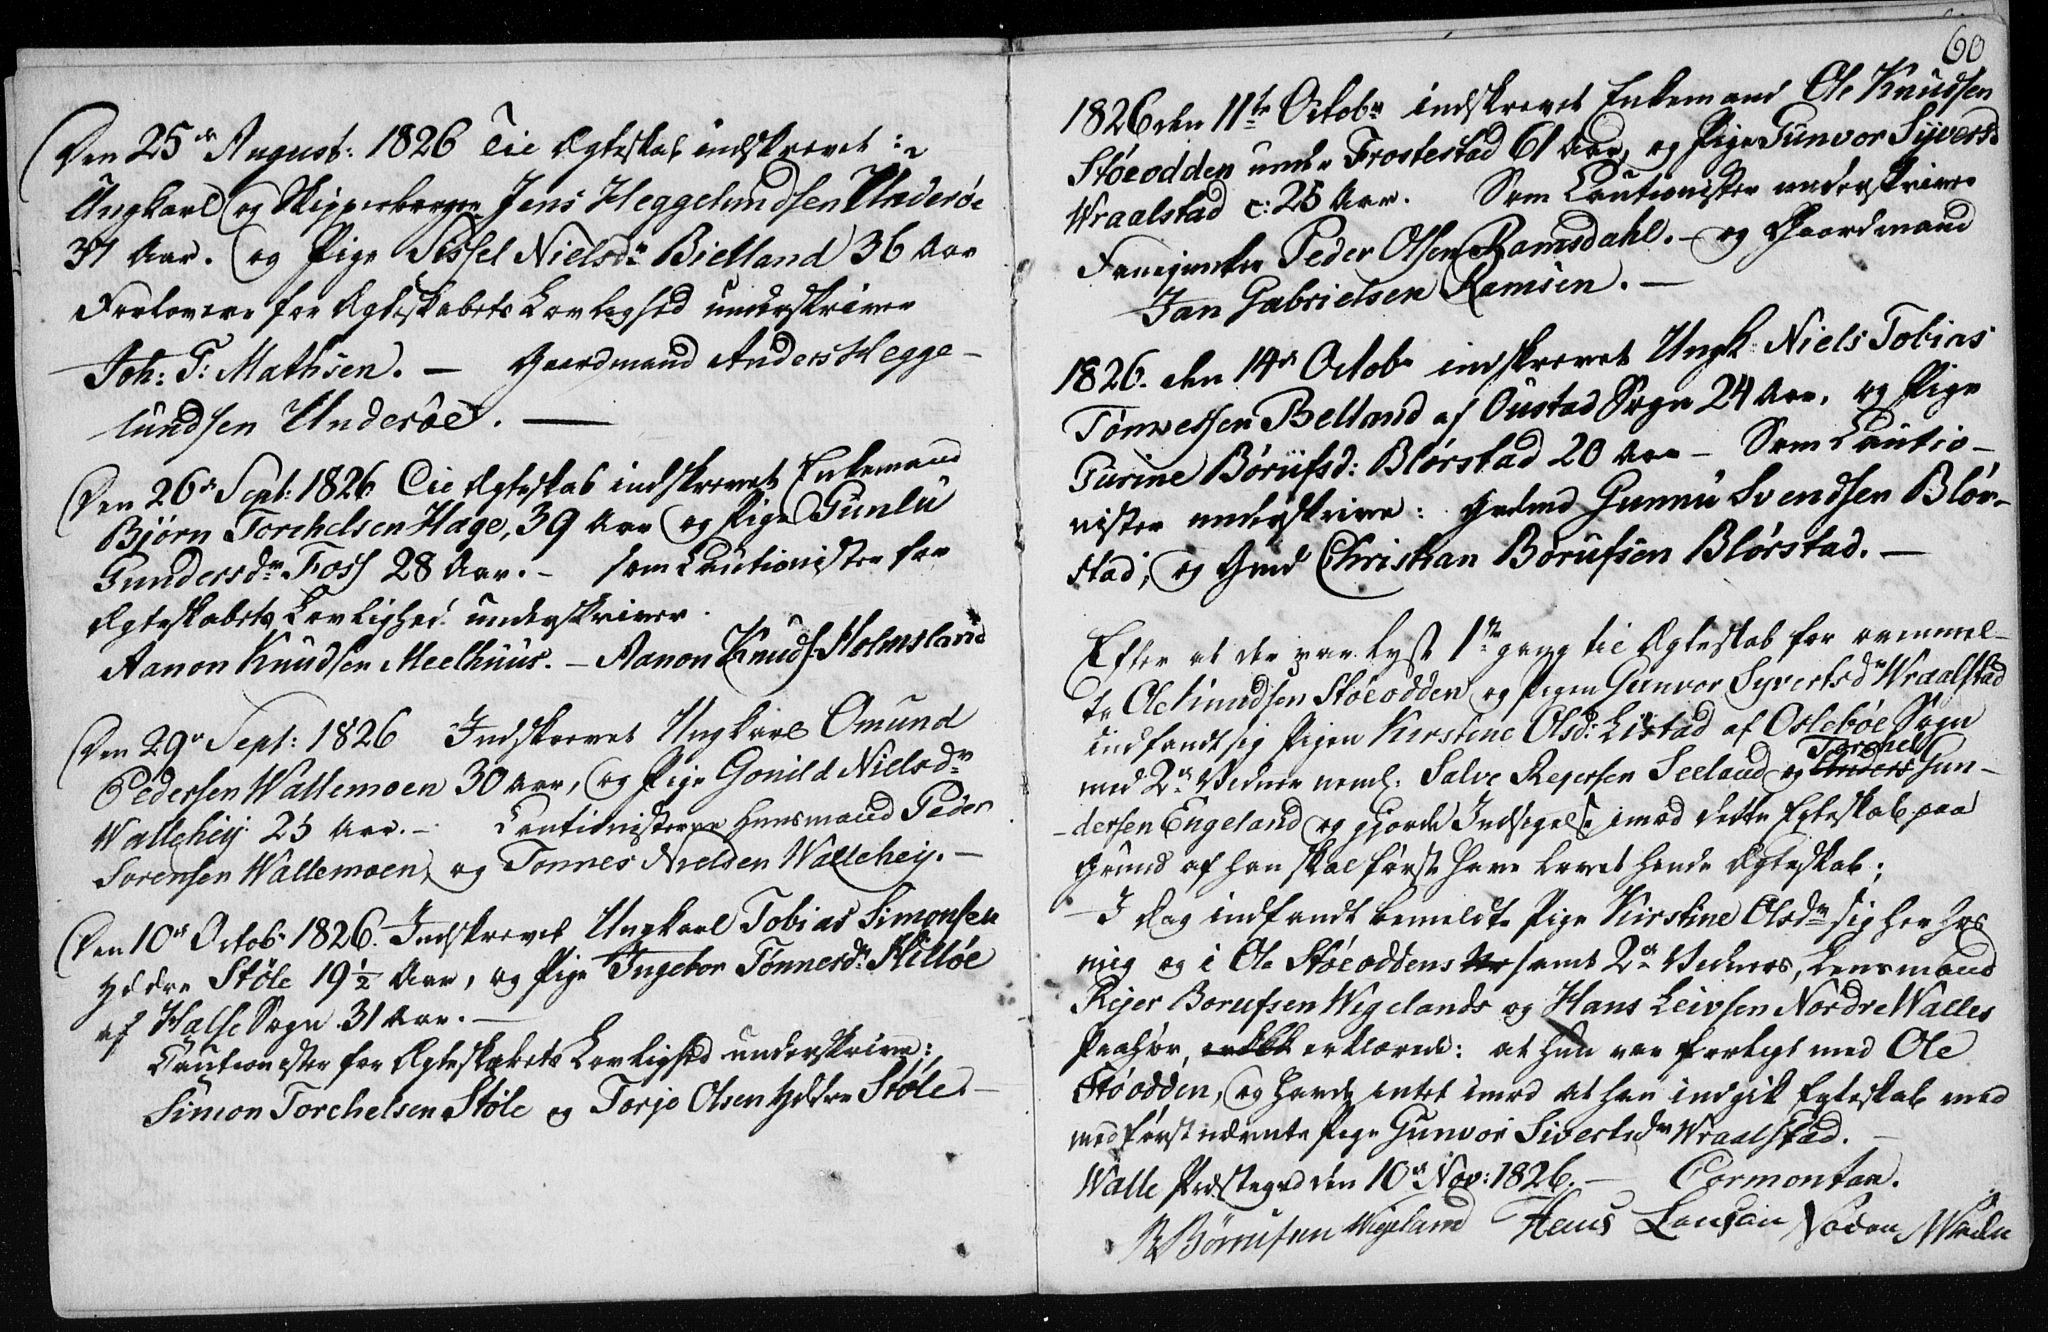 Den 25de August: 1826 Til Ægteskab indskrevet:
Ungkarl og Skipperborger Jens Heggelundsen Underøe
31 Aar. og Pige Sissel Nielsdr Bielland 36 Aar
Forlovere for Ægteskabets Lovlighed underskriver
Joh: T: Mathsen. — Gaardmand Anders Hegge-
lundsen Underøe. —
Den 26de Sept: 1826 Til Ægteskab indskrevet Enkemand
Bjørn Torchelsen Hage, 39 Aar og Pige Gunlu
Gundersdr Foss 28 Aar. — som Cautionister for
Ægteskabets Lovlighed underskriver.
Aanon Knudsen Meelhuus. — Aanon Knuds. Holmsland
Den 29de Sept: 1826 Indskrevet Ungkarl Omund
Pedersen Wallemoen 30 Aar, og Pige Gonild Nielsdr
Wallehei 25 Aar. — Cautionisterne Huusmand Peder
Sorensen Wallemoen, og Tonnes Nielsen Wallehei. —
Den 10de Octob: 1826. Indskrevet Ungkarl Tobias Simonsen
Yddre Støle 19½ Aar, og Pige Ingebor Tønnesdr Skilløe
af Halse Sogn 31 Aar. —
Cautionister for Ægteskabets Lovlighed underskrive:
Simon Torchelsen Støle og Torje Olsen Yddre Støle. —
60
1826 den 11te Octobr indskrevet Enkemand Ole Knudsen
Støeodden under Frostestad 61 Aar, og Pige Gunvor Syversd.
Wraalstad c: 25 Aar. Som Cautionister underskriver
Fanejunker Peder Olsen Ramsdahl. — og Gaardmand
Jan Gabrielsen Ramsen. —
1826. den 14de Octobr indskrevet Ungk Niels Tobias
Tønnessen Belland af Oustad Sogn 24 Aar, og Pige
Turine Børufsd: Blørstad 20 Aar — Som Cautio-
nister underskrive: Grdmd Gunnu Svendsen Blør-
stad; og Gmd Christian Børufsen Blørstad. —
Efter at der var lyst 1te gang til Ægteskab for ovenmel-
te Ole Knudsen Støeodden og Pigen Gunvor Syvertsdr Wraalstad
indfandt sig Pigen Kirstine Olsd: Listad af Oslebøe Sogn
med 2de Vidner neml. Salve Rejersen Seeland og Torchel Gun-
dersen Engeland og gjorde Indsigelse imod dette Egteskab paa
Grund af han skal først have lovet hende Ægteskab;
— I Dag indfandt bemeldte Pige Kirstine Olsdr sig her hos
mig og i Ole Støeoddens samt 2de Vidners, Lensmand
Rejer Borufsen Wigelands og Hans Leivsen Nordre Walles
Paahør, erklærede: at hun var forligt med Ole
Støodden, og havde intet imod at han indgik Egteskab med
med først nævnte Pige Gunvor Sivertsdr Wraalstad. —
Walle Præstegrd den 10de Nov: 1826. — Cormontan.
R Børrufsen Wigeland Hans Lensøn Nodon Walle